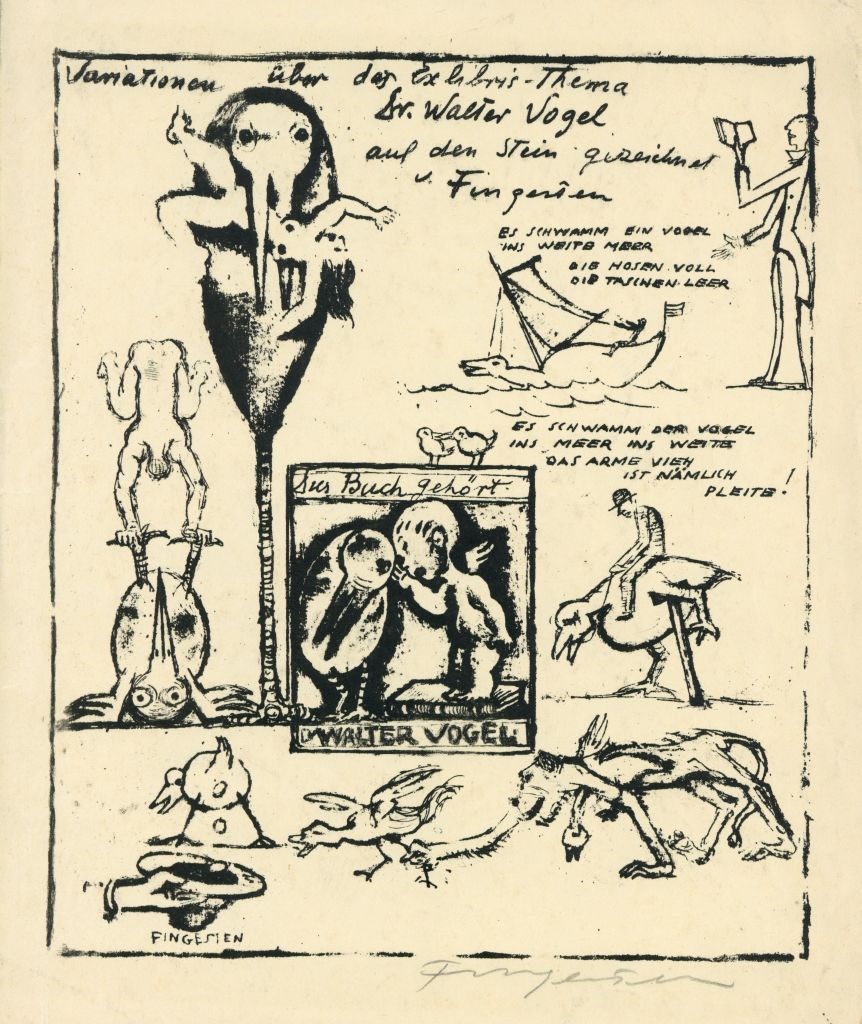 Variationen über das Exlibris-Thema
Dr. Walter Vogel
auf den Stein gezeichnet
v. Fingesten
ES SCHWAMM EIN VOGEL
INS WEITE MEER
DIE HOSEN VOLL
DIE TASCHEN LEER
ES SCHWAMM DER VOGEL
INS MEER INS WEITE
DAS ARME VIEH
IST NÄMLICH
PLEITE!
Dies Buch gehört
DR WALTER VOGEL
FINGESTEN
Fingesten